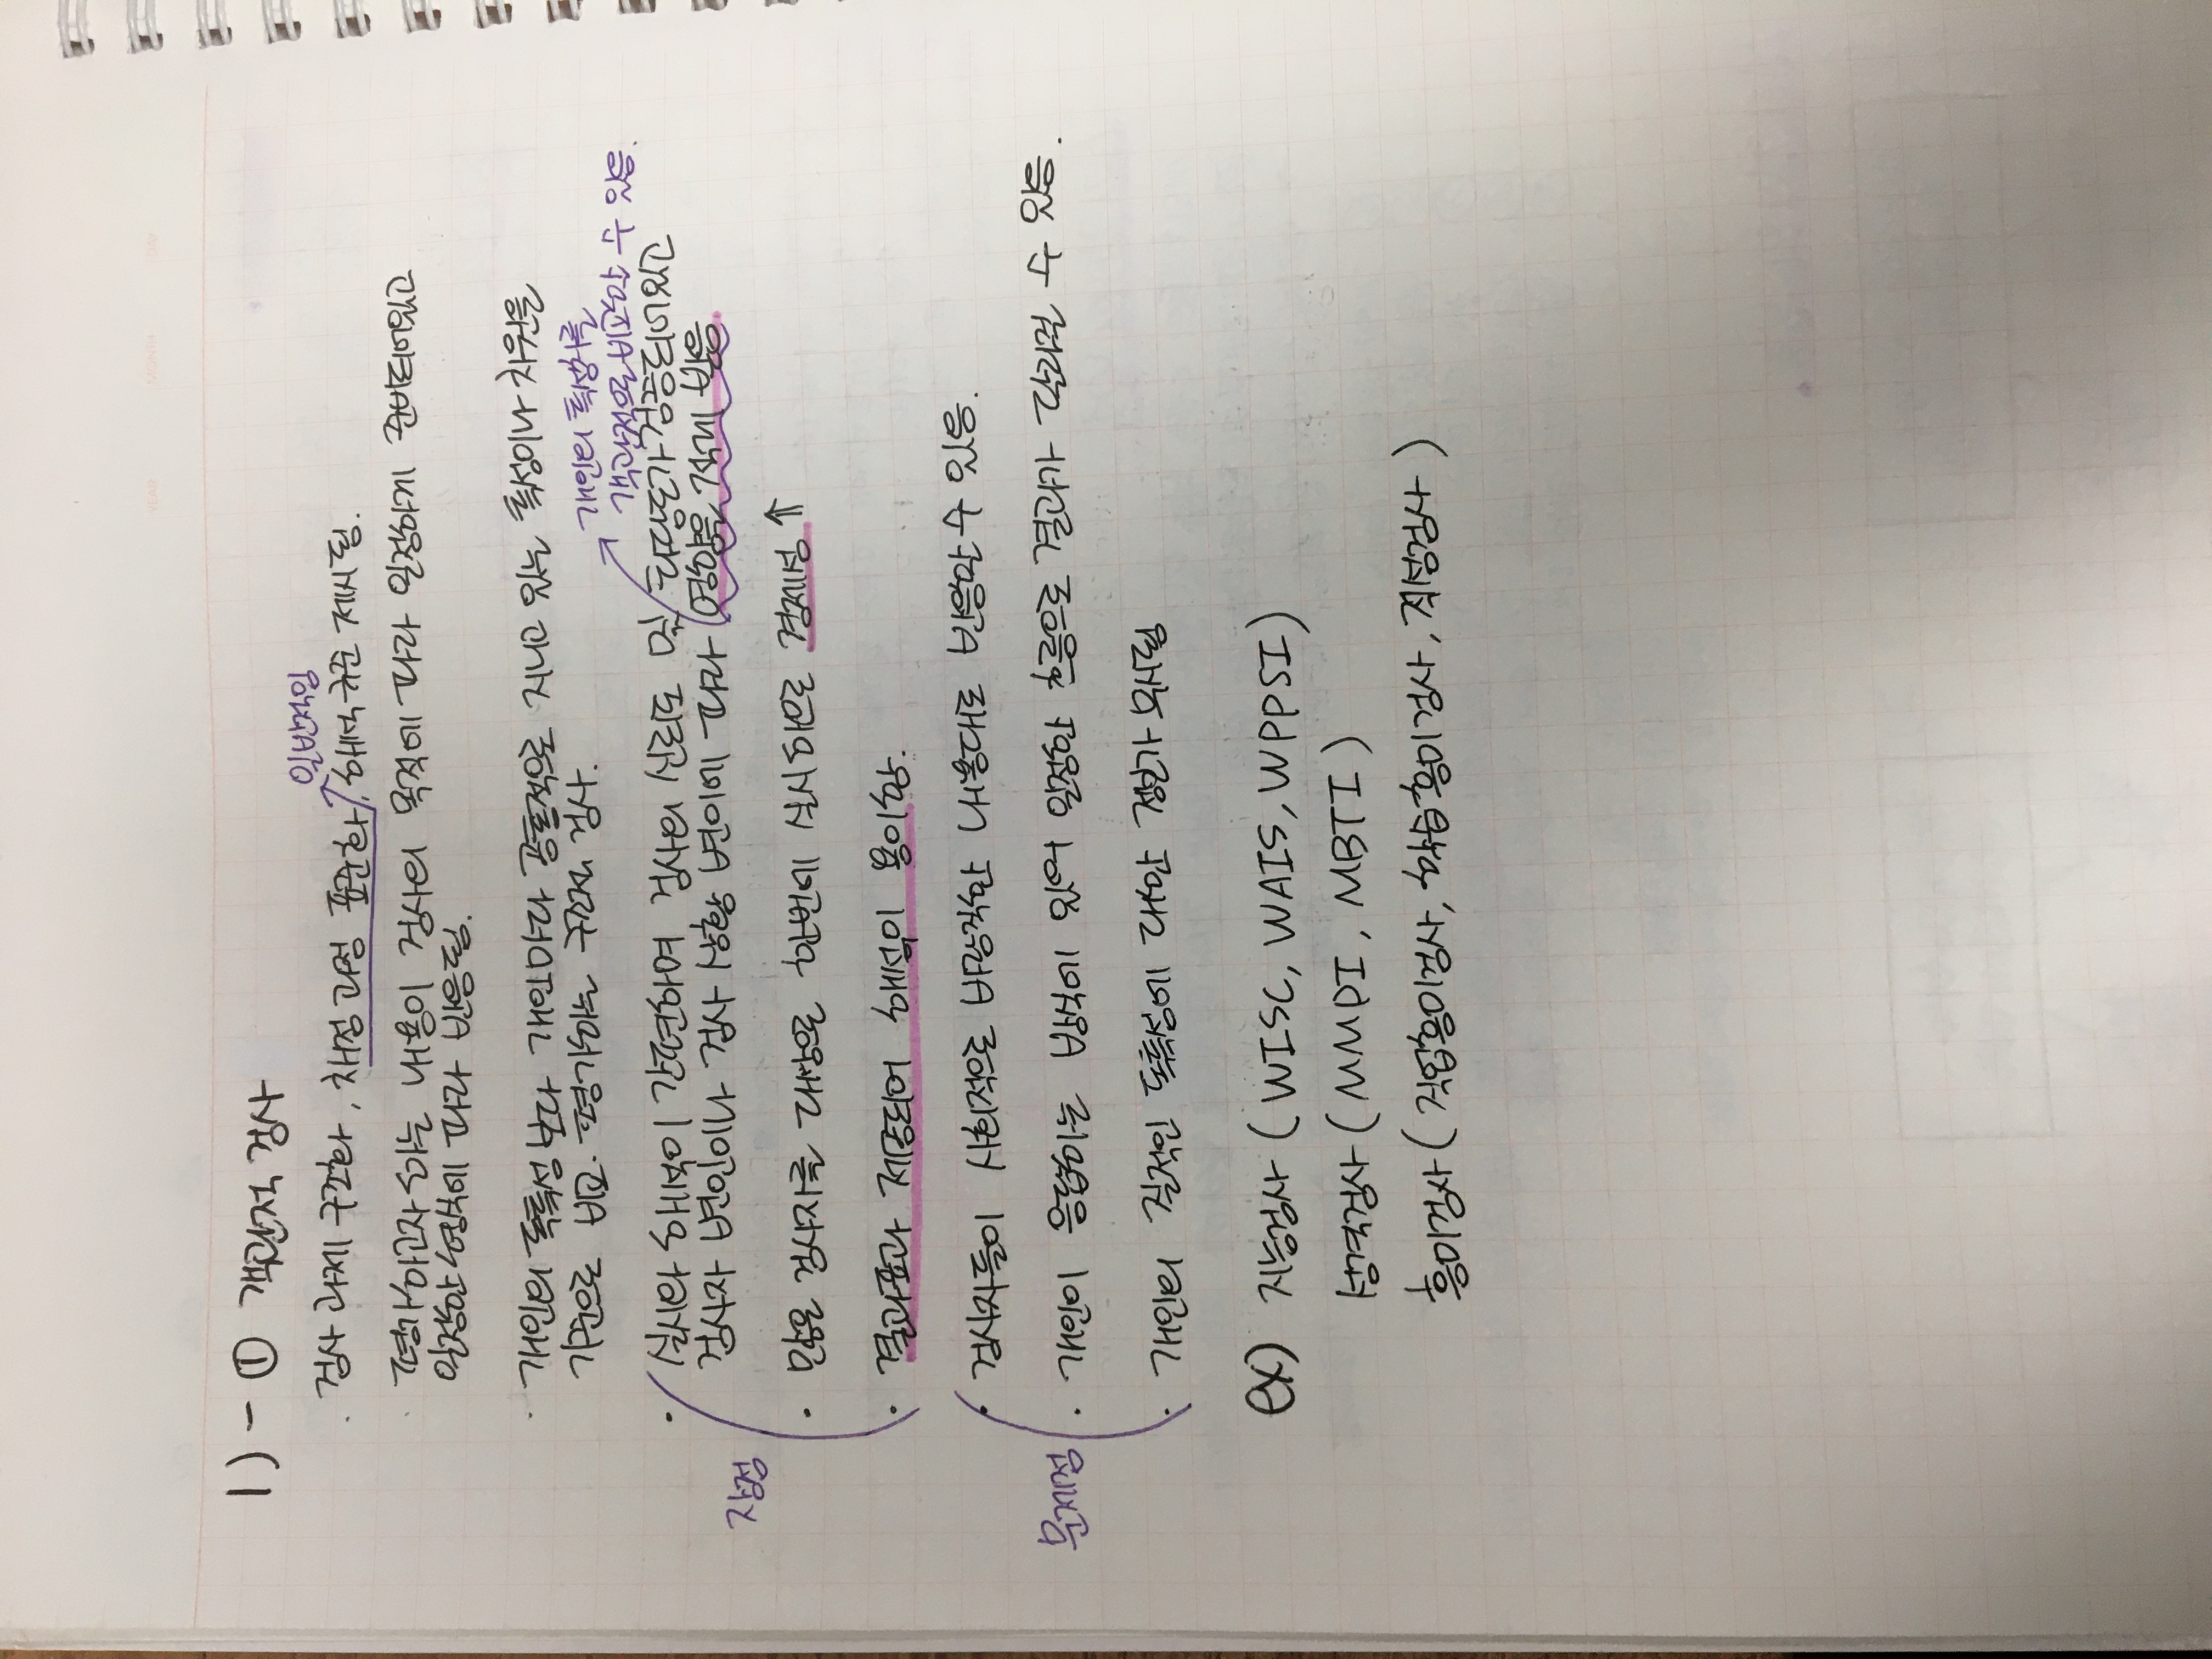 YEAR MONTH DAY
1) - ① 객관적 검사
일반적임
· 검사 과제 구조화, 채점 과정 표준화, 해석 규준 제시됨.
· 평가하고자 하는 내용이 검사의 목적에 따라 일정하게 준비되어있고
일정한 형식에 따라 반응됨.
· 개인의 독특성 보다 개인마다 공통적으로 지니고 있는 특성이나 차원을
기준으로 비교. 평가하는 구조적 검사.
개인의 특성차를
객관적으로 비교할 수 있음.
· 실시와 해석이 간편하며 검사의 신뢰도 및 타당도가 검증되어있고
장점
검사자 변인이나 검사 상황 변인에 따라 영향을 적게 받음
· 많은 검사자를 대상으로 한번에 실시하므로 경제성↑
· 결과표과 제공되어 해석이 용이함.
· 검사자들이 사회적으로 바람직한 내용대로 반응할 수 있음.
문제점
· 개인이 응답하는 방식에 있어 일정한 흐름으로 결과가 달라질 수 있음.
· 개인의 질적인 독특성에 대한 정보가 무시됨
ex) 지능검사 (WISC, WAIS, WPPSI)
성격검사 (MMPI, MBTI)
흥미검사 (직업흥미검사, 학습흥미검사, 적성검사)